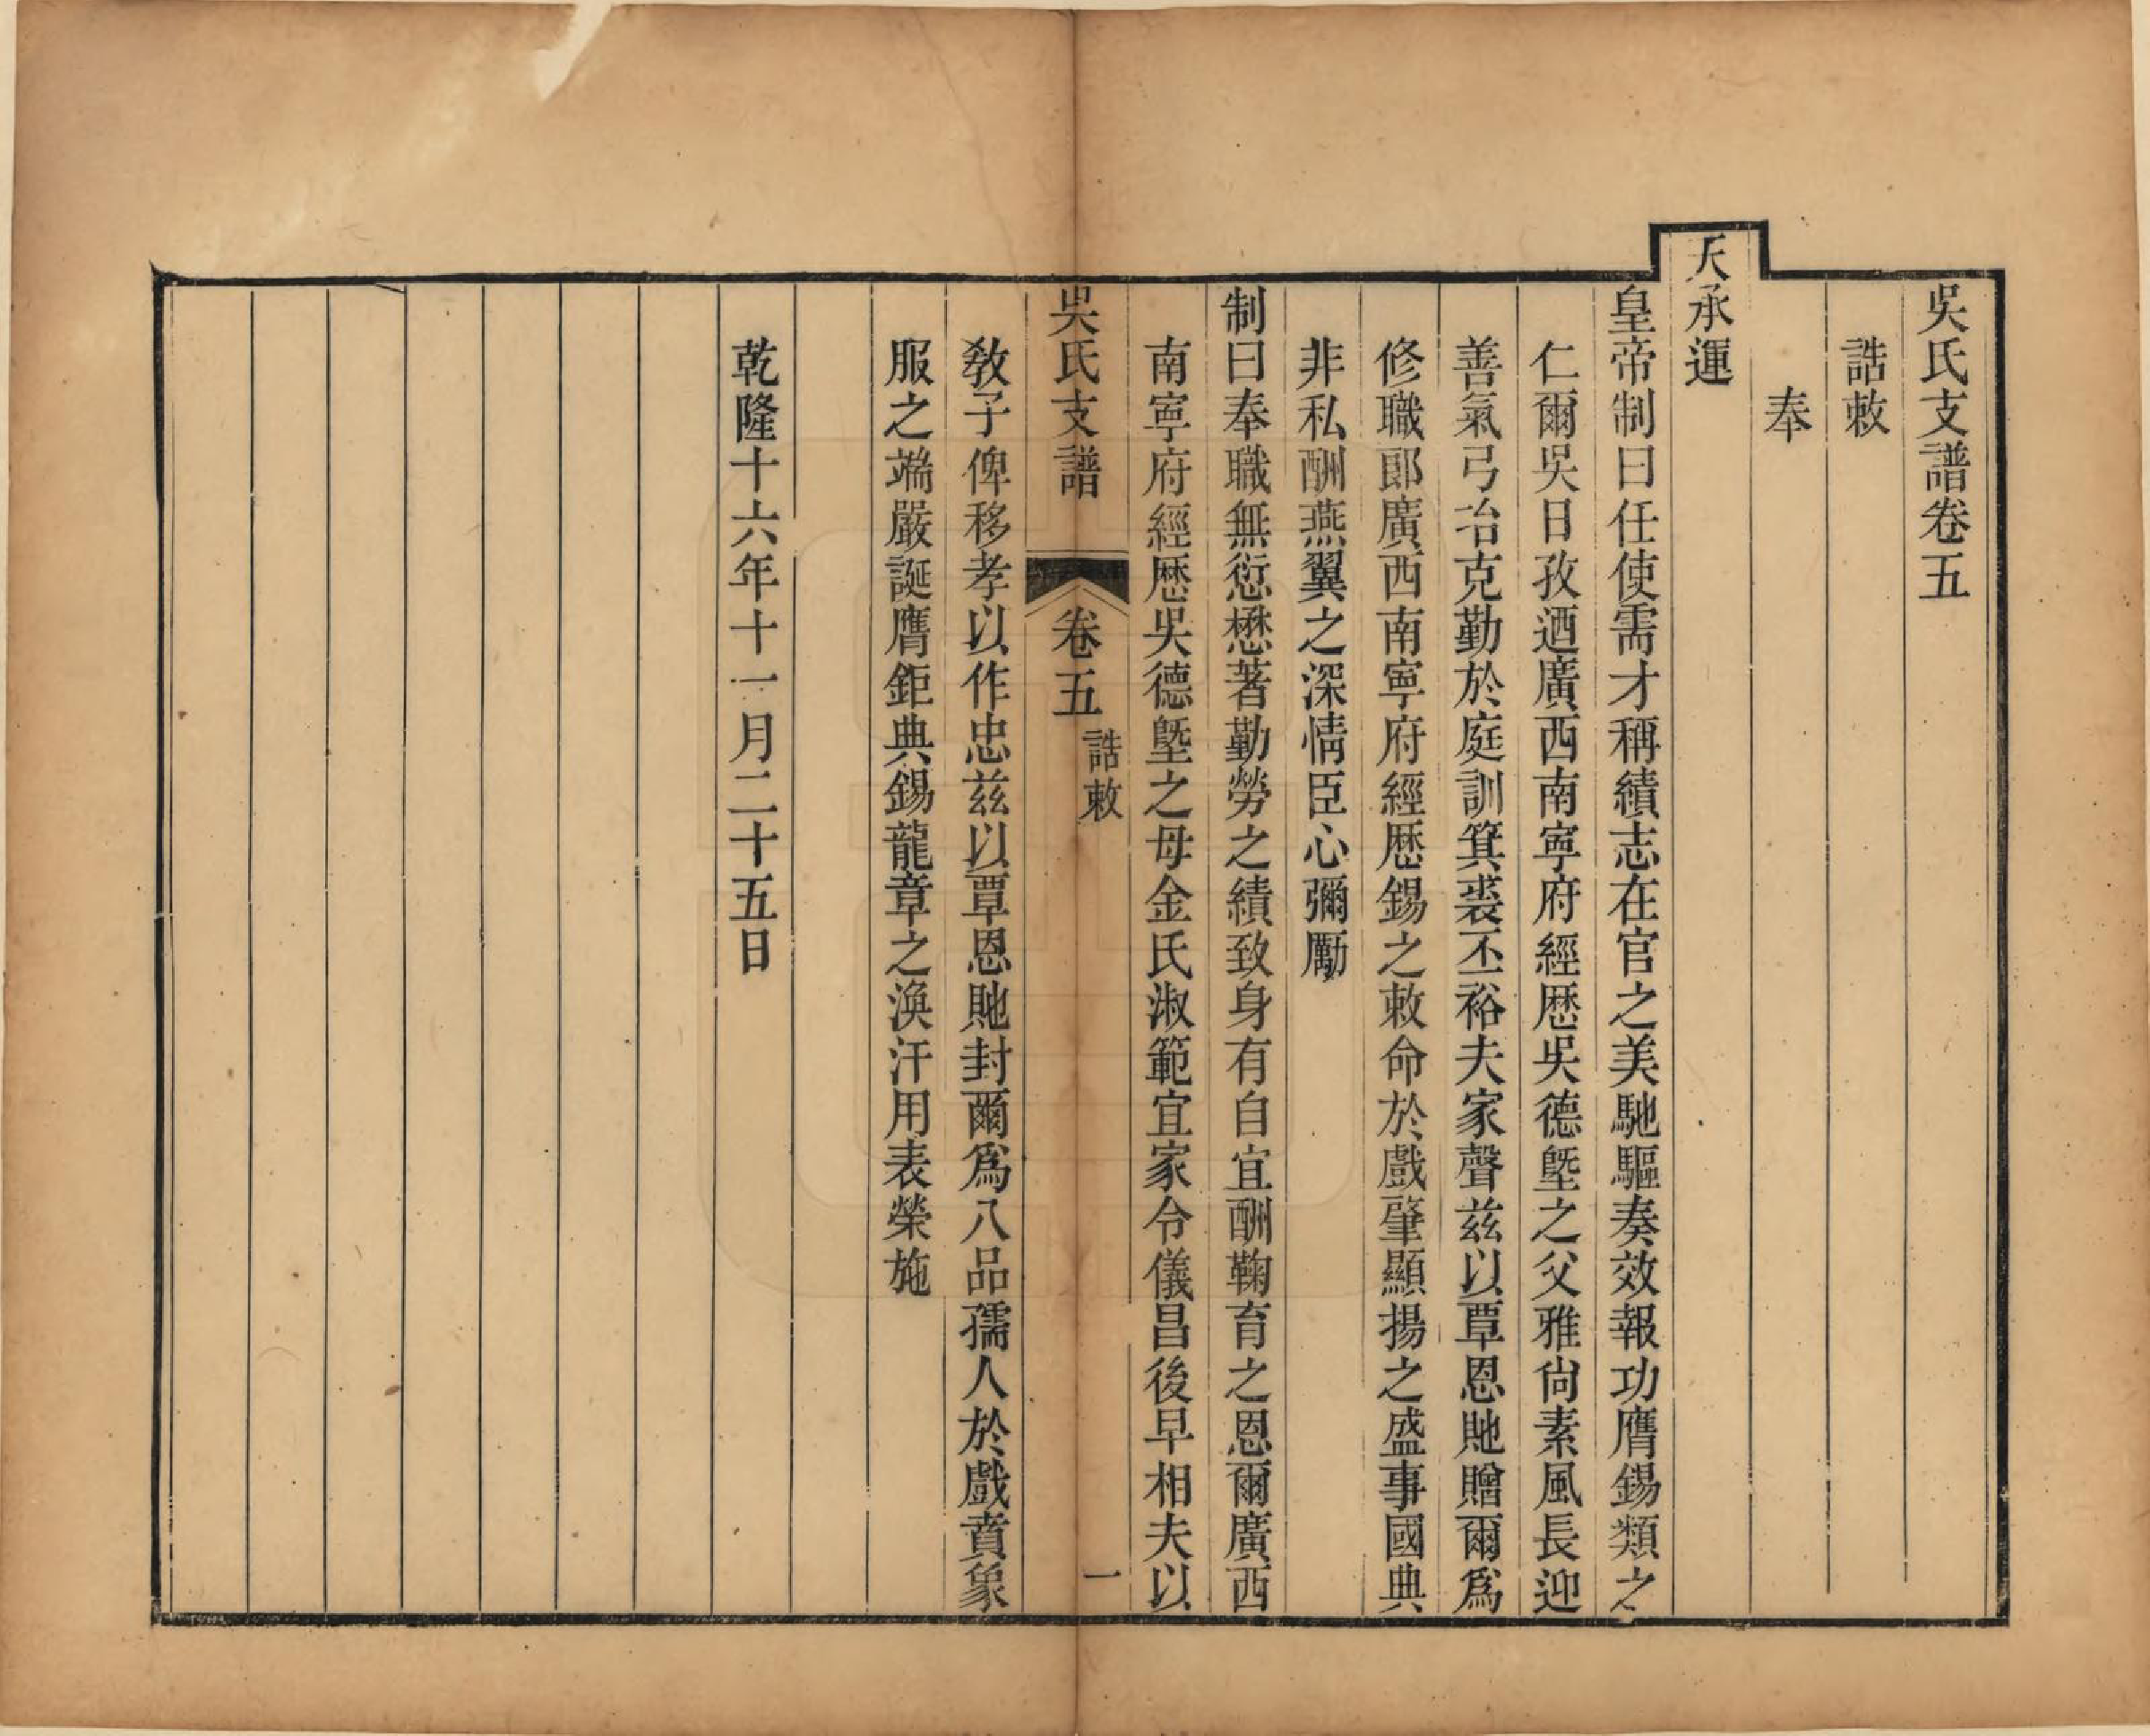 吳氏支譜卷五
誥敕
奉
天承運
皇帝制曰任使需才稱績志在官之美馳驅奏效報功膺錫類之
仁爾吳日孜迺廣西南寧府經歷吳德塈之父雅尙素風長迎
善氣弓冶克勤於庭訓箕裘丕裕夫家聲兹以覃恩貤贈爾爲
修職郎廣西南寧府經歷錫之敕命於戲肇顯揚之盛事國典
非私酬燕翼之深情臣心彌勵
制曰奉職無愆懋著勤勞之績致身有自宜酬鞠育之恩爾廣西
南寧府經歷吳德塈之母金氏淑範宜家令儀昌後早相夫以
吳氏支譜
卷五
誥敕
一
敎子俾移孝以作忠兹以覃恩貤封爾爲八品孺人於戲賁象
服之端嚴誕膺鉅典錫龍章之渙汗用表榮施
乾隆十六年十一月二十五日